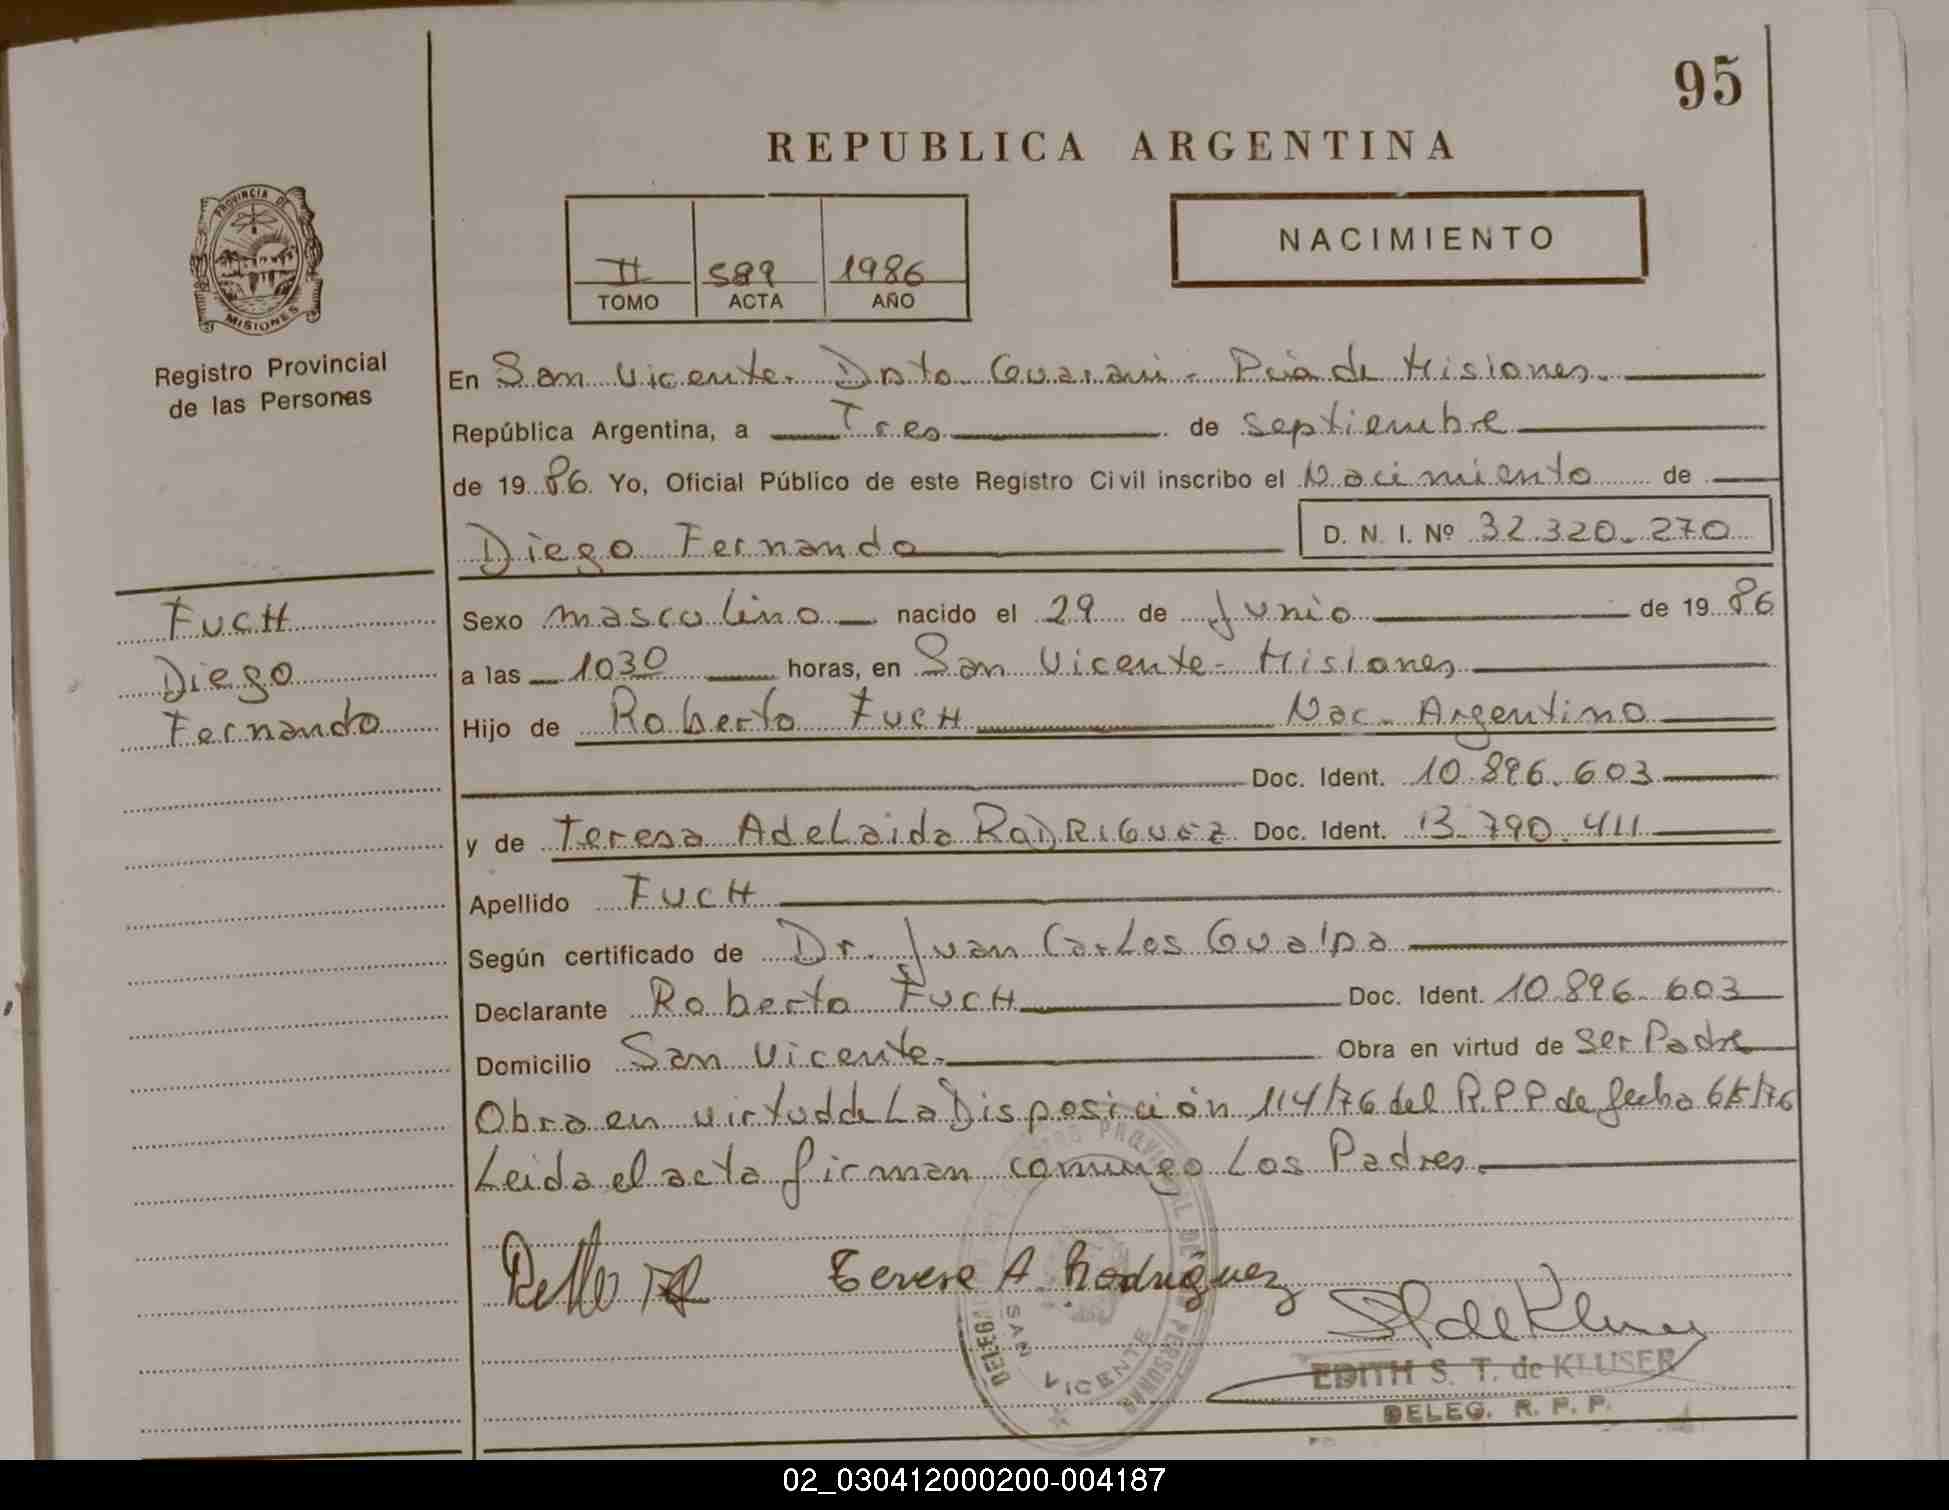 95
REPUBLICA ARGENTINA
PROVINCIA DE
MISIONES
Registro Provincial
de las Personas
II 589 1986
TOMO ACTA AÑO
NACIMIENTO
En San Vicente. Dpto Guarani - Pcia de Misiones.
República Argentina, a Tres de septiembre
de 1986 Yo, Oficial Público de este Registro Civil inscribo el Nacimiento de
Diego Fernando D. N. I. Nº 32.320.270
FUCH
Diego
Fernando
Sexo masculino nacido el 29 de Junio de 1986
a las 1030 horas, en San Vicente - Misiones
Hijo de Roberto FUCH Nac. Argentino
Doc. Ident. 10.896.603
y de Teresa Adelaida RODRIGUEZ Doc. Ident. 13.790.411
Apellido FUCH
Según certificado de Dr. Juan Carlos Gualpa
Declarante Roberto FUCH Doc. Ident. 10.896.603
Domicilio San Vicente. Obra en virtud de ser Padre
Obra en virtud de La Disposición 114/76 del R.P.P de fecha
Leida el acta firman conmigo Los Padres.
Terese A. Rodriguez
SAN VICENTE
EDITH S. T. de KLUSER
DELEG. R. P. P.
02_030412000200-004187